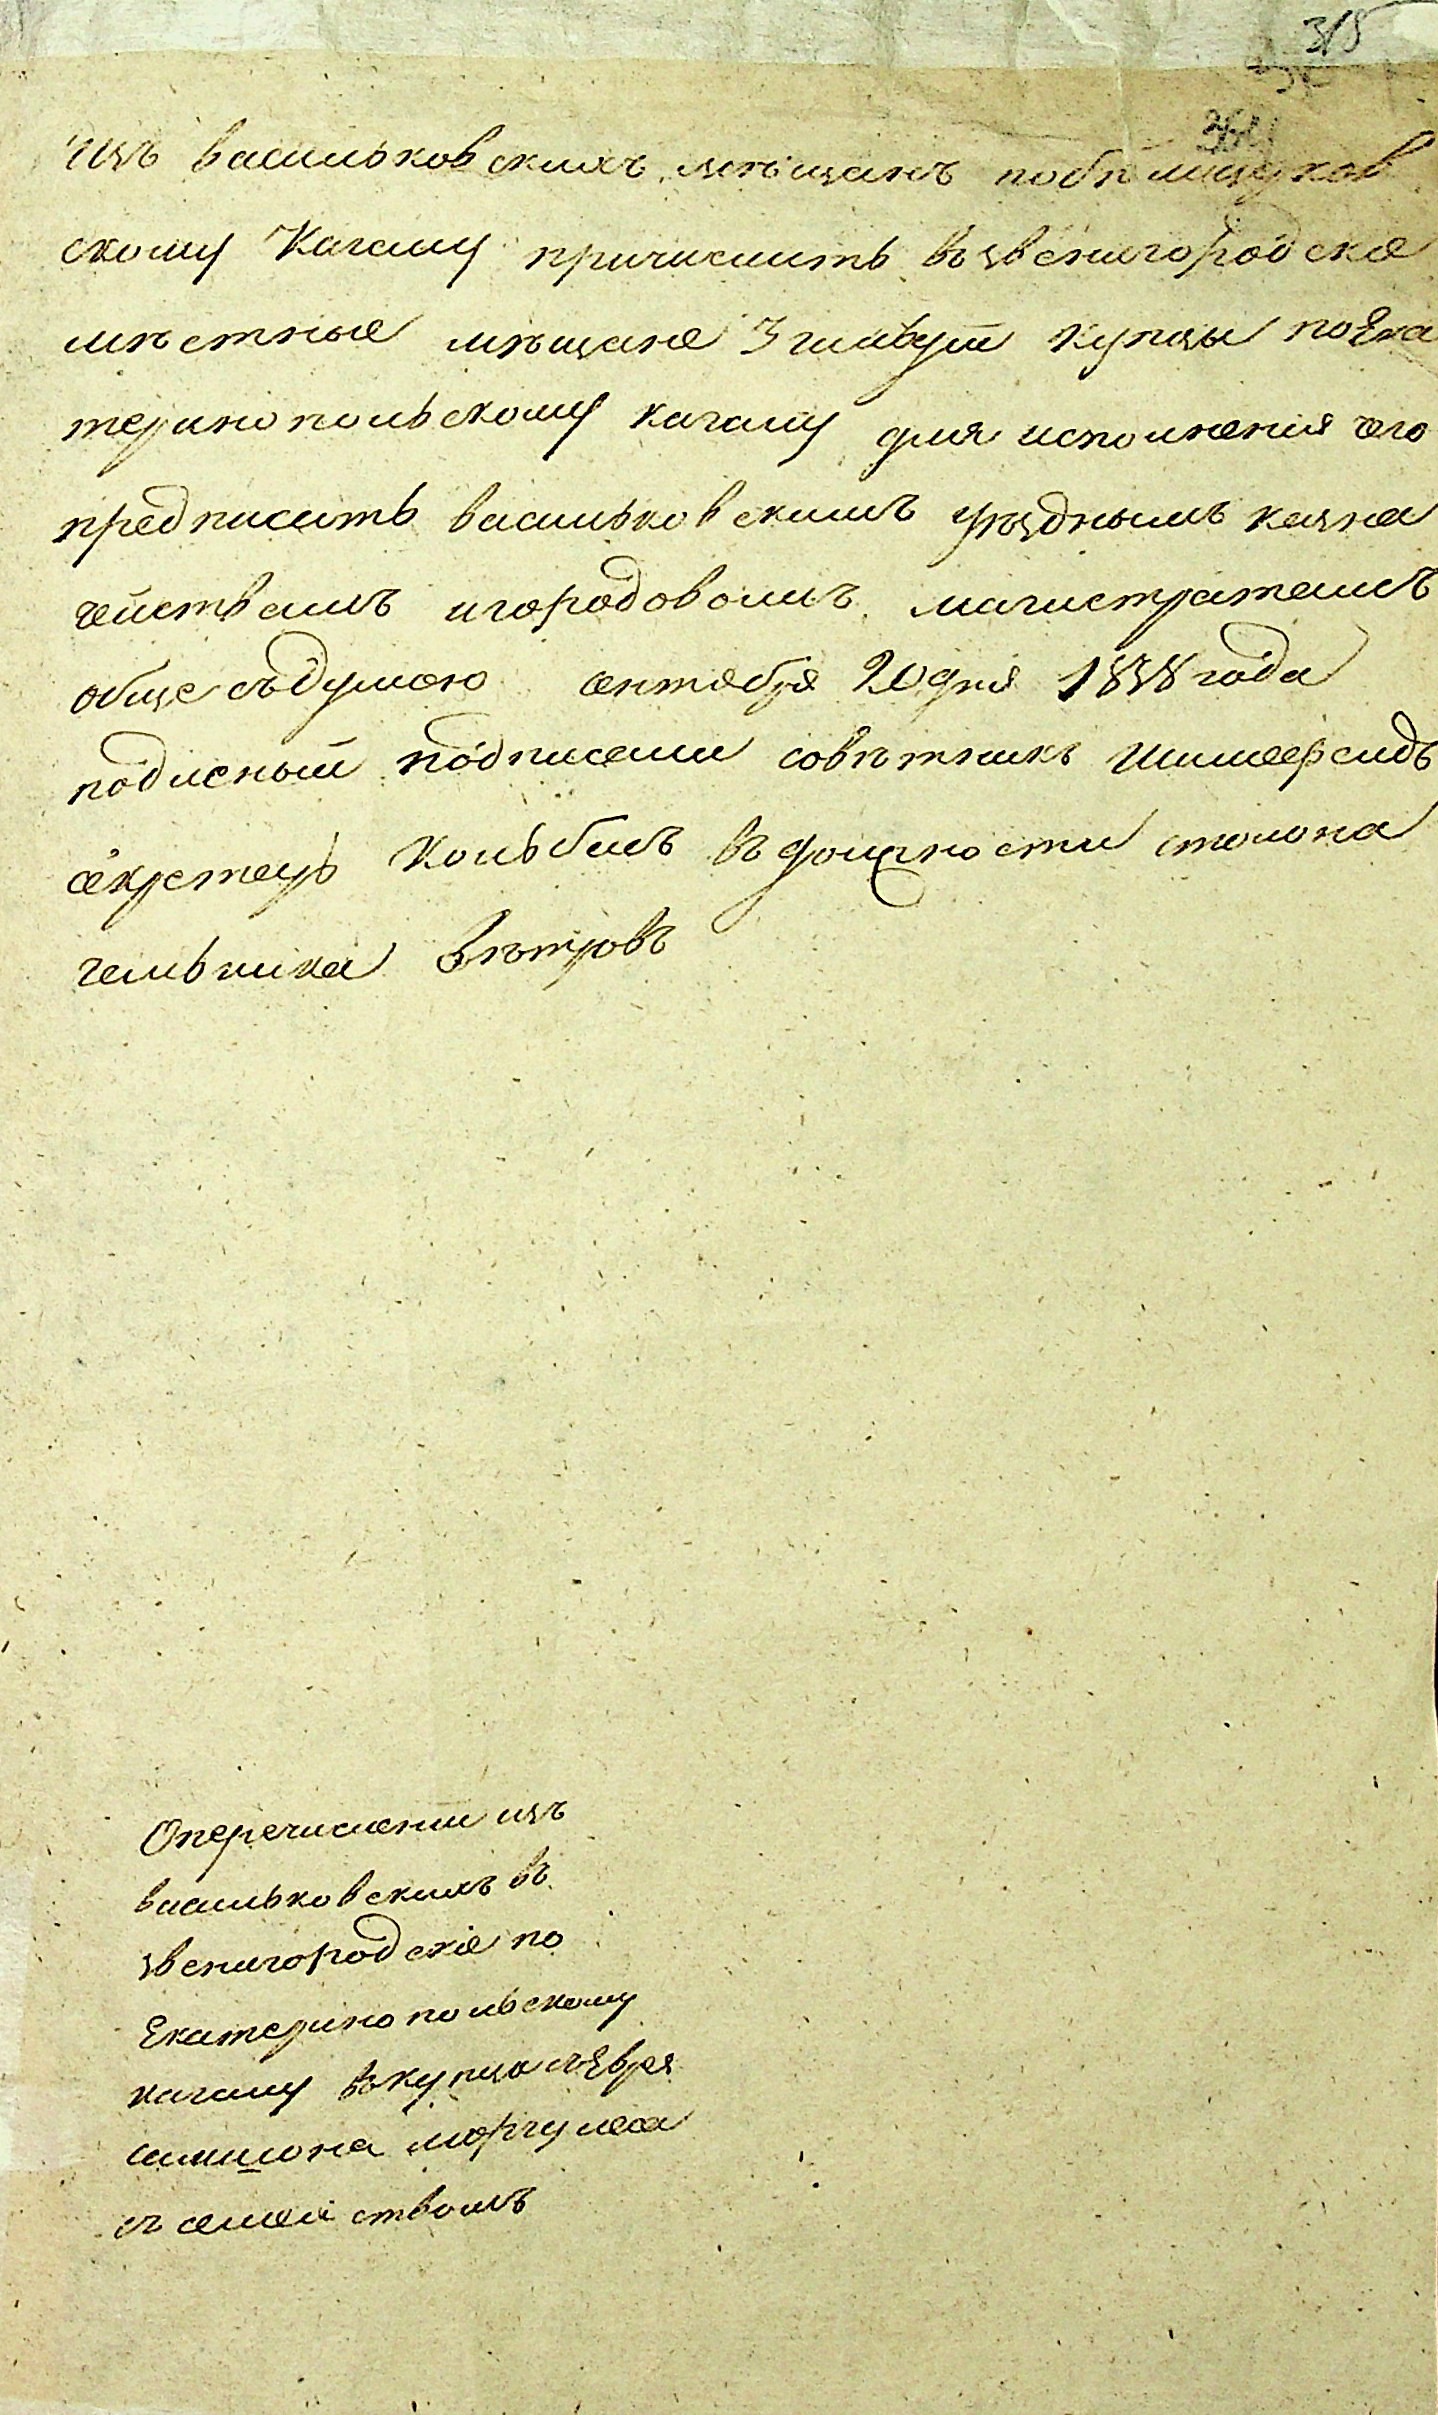 315
изъ васильковскихъ мѣщанъ побѣлицуков
скому Кагалу причислить въ звенигородскіе
мѣстные мѣщане 3 гильдіи купцы поЕка
теринопольскому кагалу для исполненія чего
предписать васильковскимъ уѣзднымъ казна
чействамъ игородовомъ магистратамъ
обще съдумою сентября 20 дня 1838 года
подлсный подписали совѣтникъ
секретарь Кольбасъ въ должности столона
чальника Вѣтровъ
Оперечисленіи изъ
васильковскихъ въ
звенигородскіе по
Екатеринопольскому
кагалу въкупцы съЕврея
симшона моргулеса
съ семействомъ